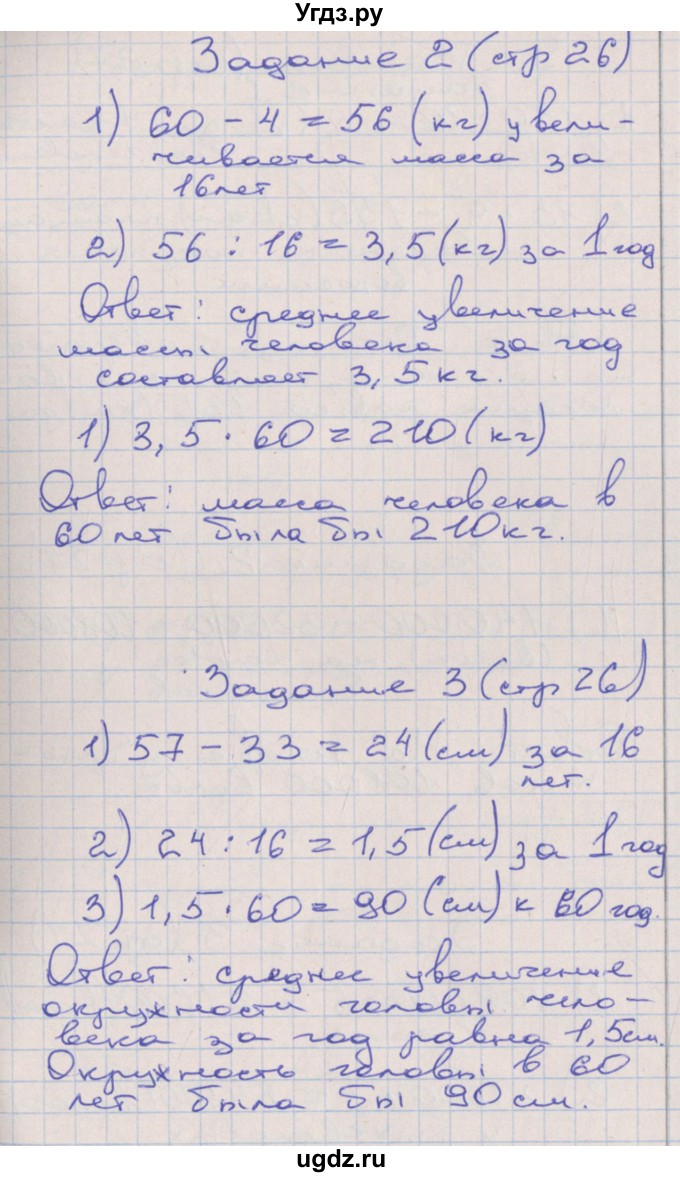 Угдз.ру
Задание 2 (стр 26)
1) 60 - 4 = 56 (кг) увели-
чивается масса за
16 лет
2) 56 : 16 = 3,5 (кг) за 1 год
Ответ: среднее увеличение
массы человека за год
составляет 3,5 кг.
1) 3,5 · 60 = 210 (кг)
Ответ: масса человека в
60 лет была бы 210 кг.
Задание 3 (стр 26)
1) 57 - 33 = 24 (см) за 16
лет.
2) 24 : 16 = 1,5 (см) за 1 год
3) 1,5 · 60 = 90 (см) к 60 год.
Ответ: среднее увеличение
окружности головы чело-
века за год равна 1,5 см.
Окружность головы в 60
лет была бы 90 см.
ugdz.ru